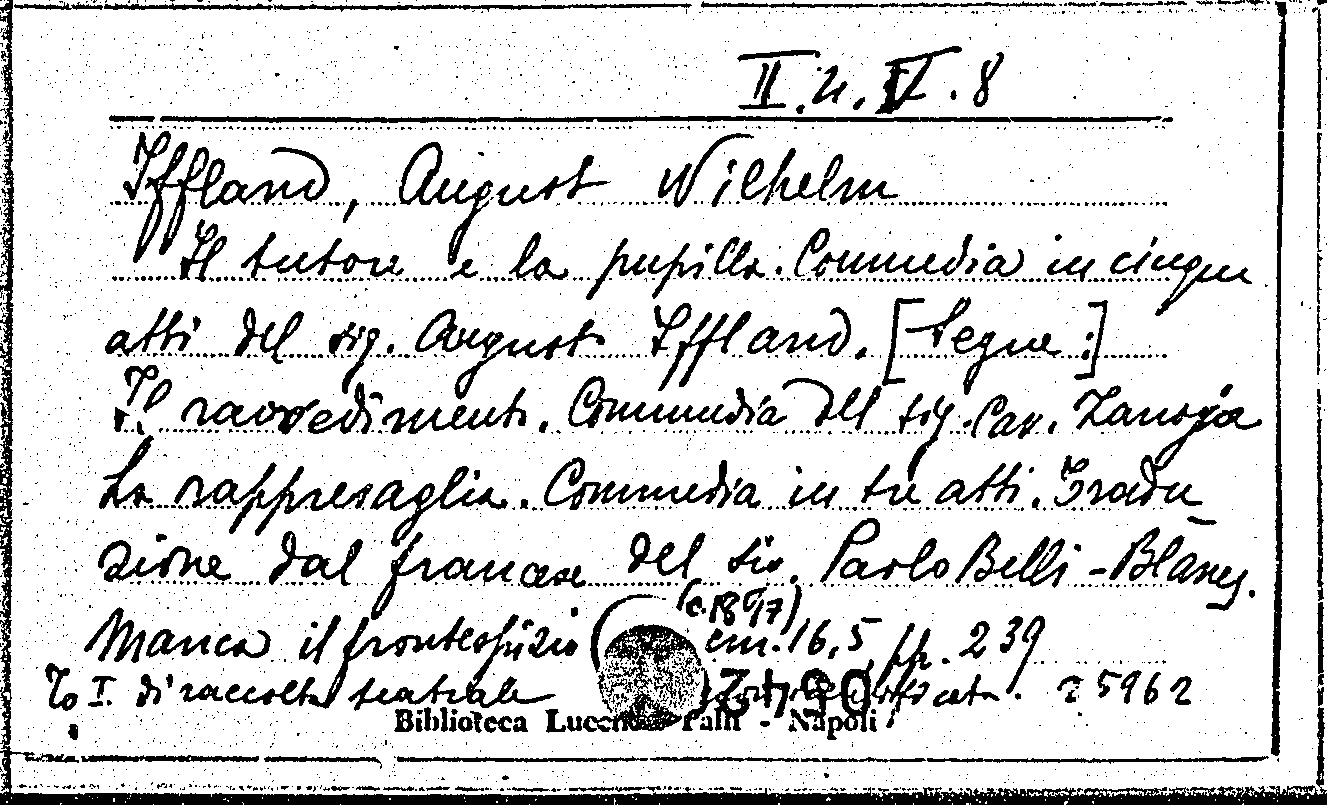 II.4.IV.8
Iffland, August Wilhelm
Il tutore e la pupilla. Commedia in cinque
atti del sig. August Iffland. [Segue:]
Il ravvedimento. Commedia del sig. Cav. Zanoja
La rappresaglia. Commedia in tre atti. Tradu
zione dal francese del sig. Paolo Belli-Blanes.
Manca il frontespizio cm. 16,5, pp. 239
To I. di raccolta teatrale 25962
Biblioteca Lucchesi Palli - Napoli